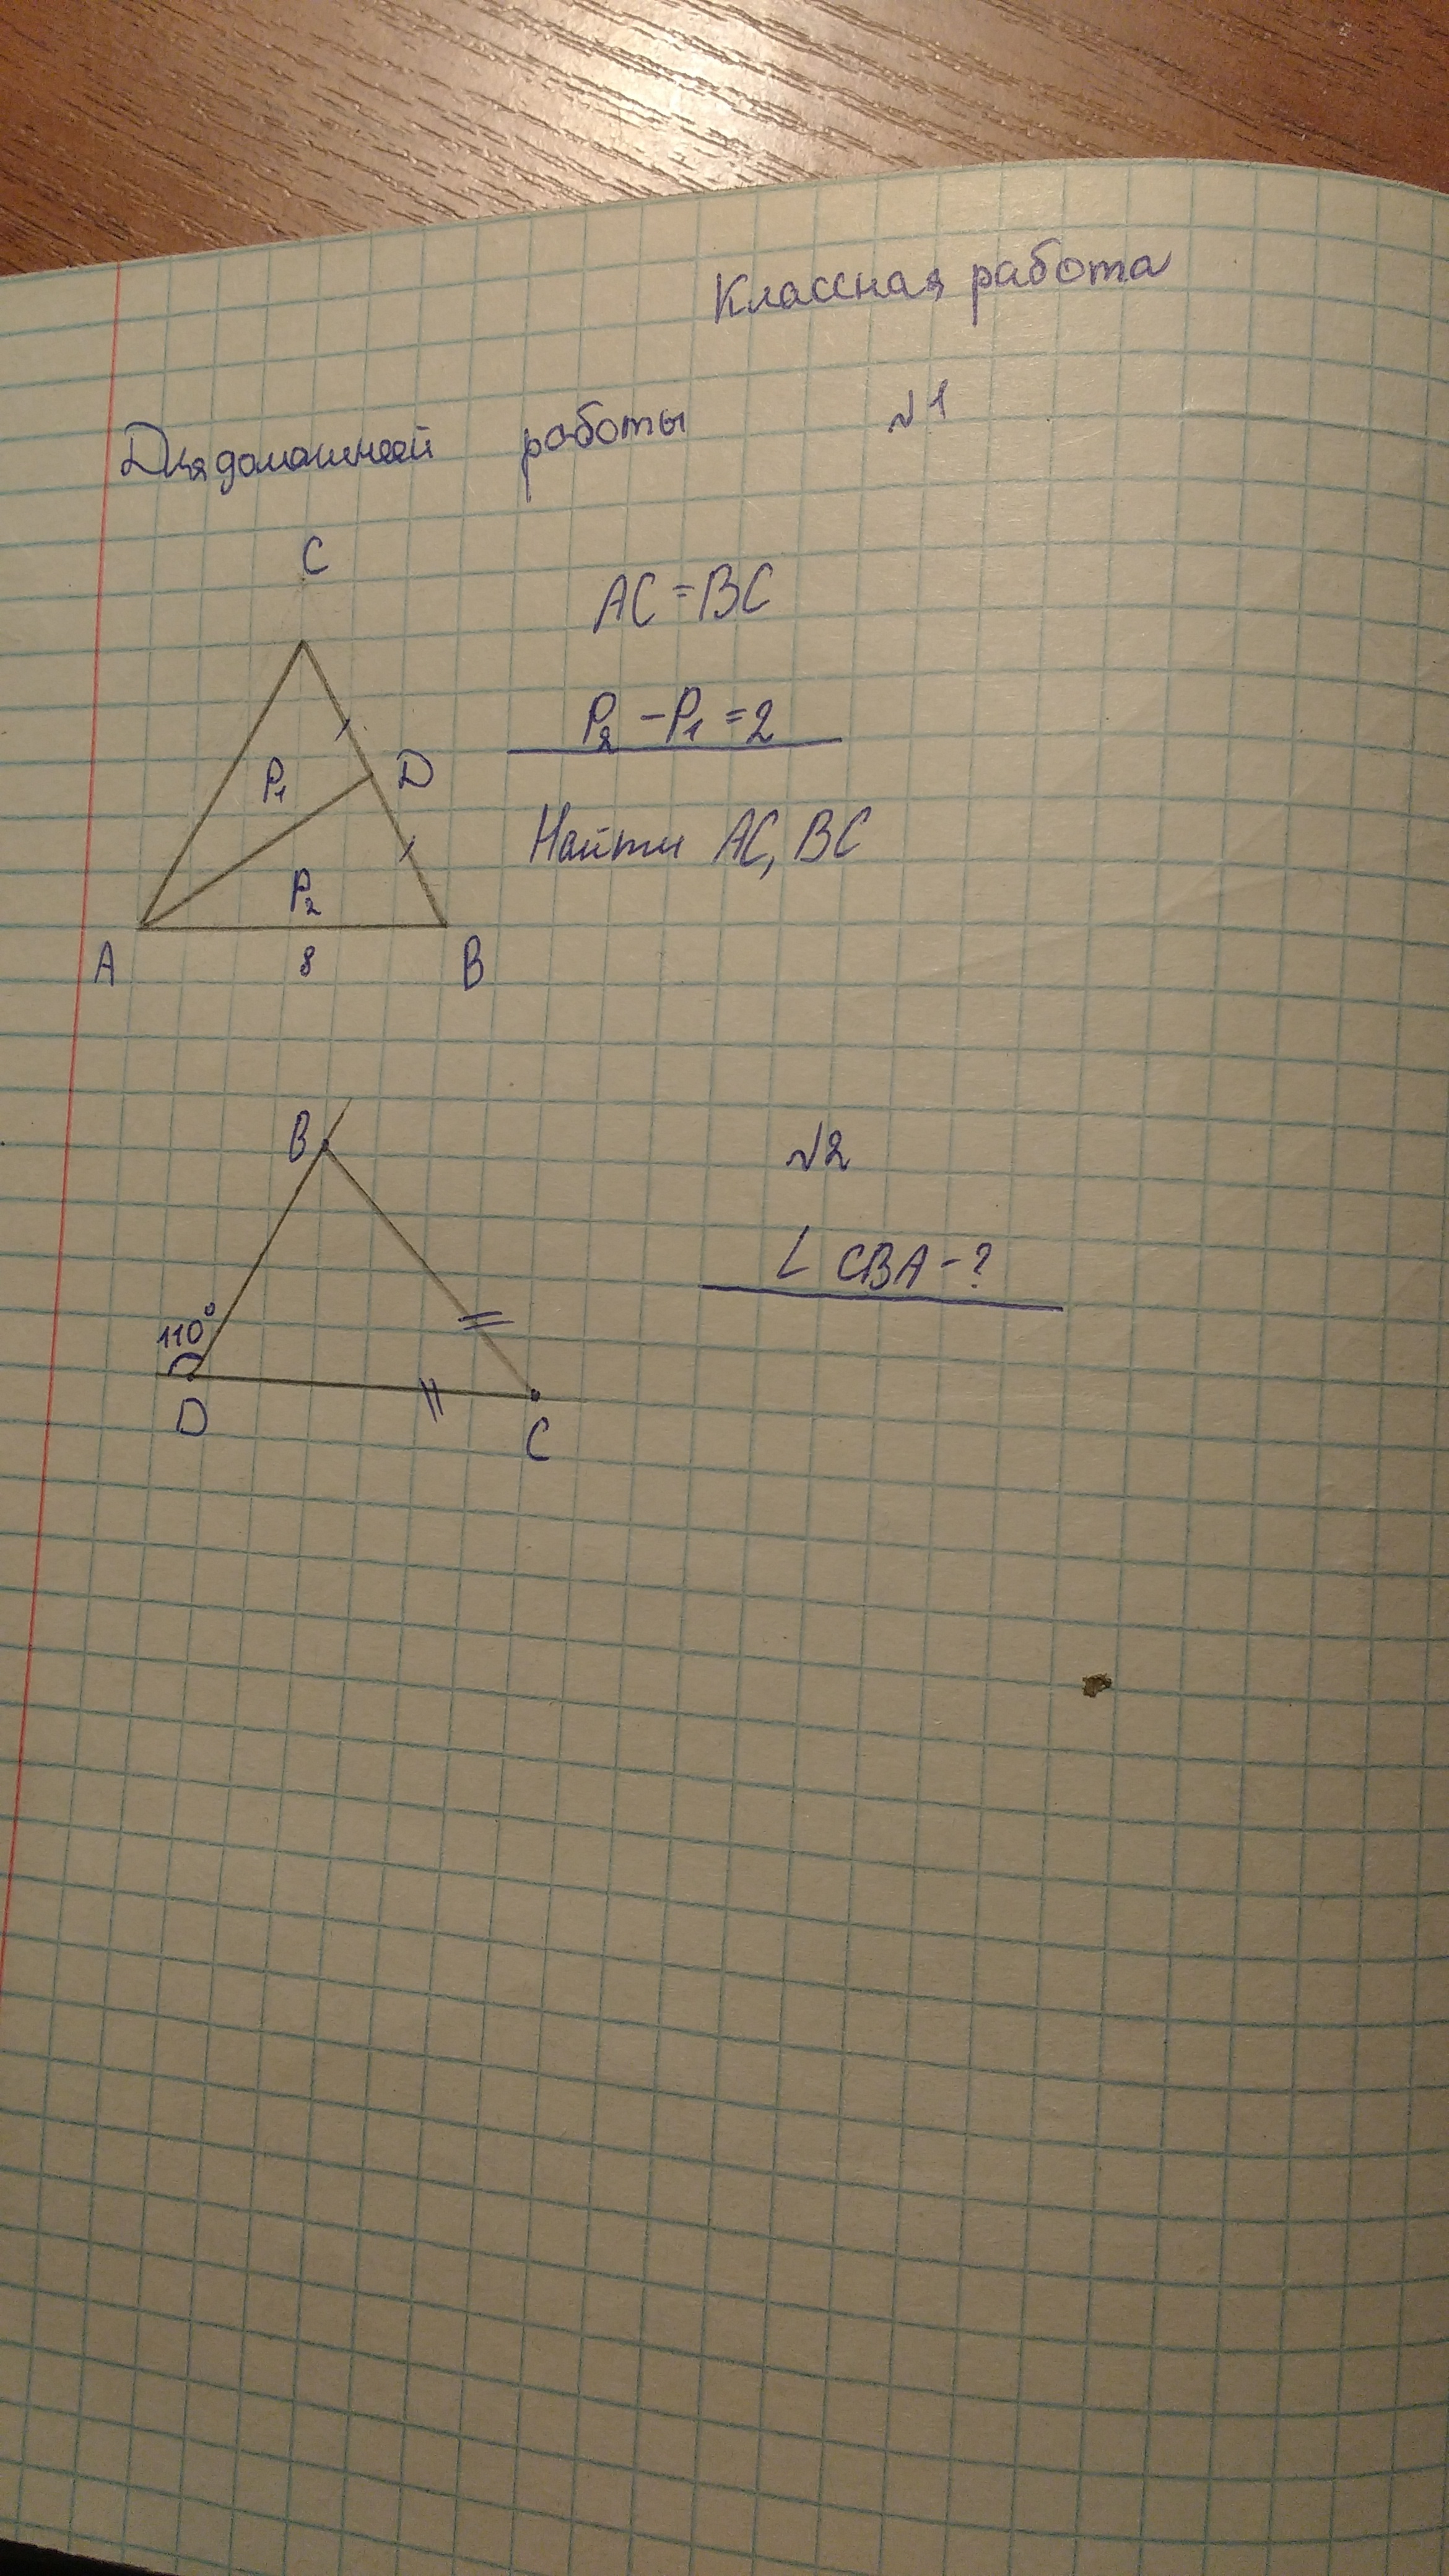 Классная работа
Для домашней работы №1
C
AC = BC
P₂ - P₁ = 2
P₁
D
Найти AC, BC
P₂
A 8 B
B
№2
∠ CBA - ?
110°
D
C